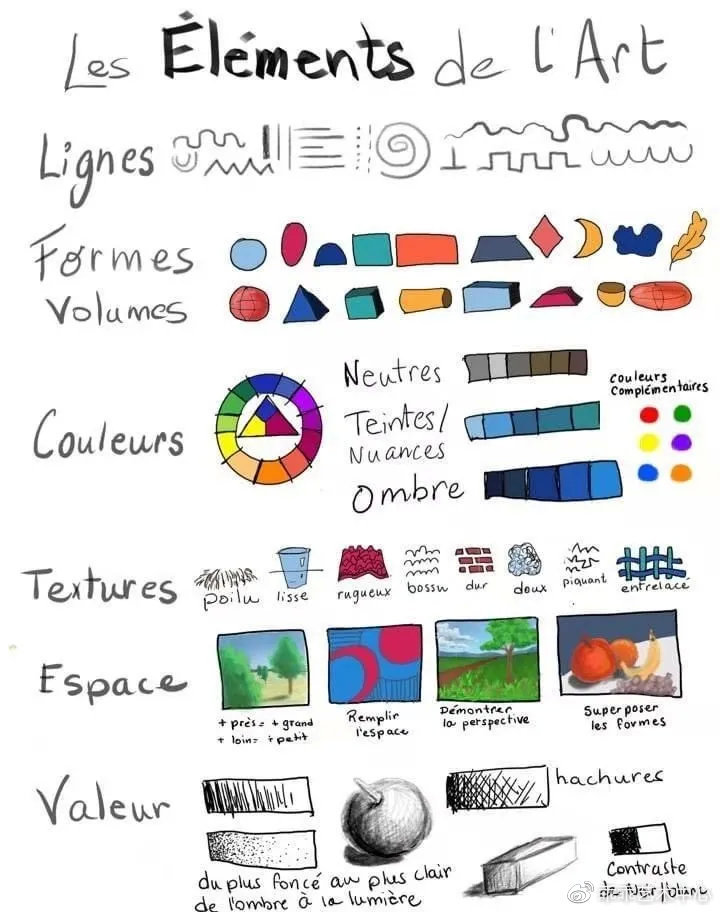 Les Éléments de l'Art
Lignes
Formes
Volumes
Couleurs
Neutres
Teintes/
Nuances
Ombre
Couleurs
Complémentaires
Textures
poilu
lisse
rugueux
bossu
dur
doux
piquant
entrelacé
Espace
+ près = + grand
+ loin = + petit
Remplir
l'espace
Démontrer
la perspective
Superposer
les formes
Valeur
hachures
du plus foncé au plus clair
de l'ombre à la lumière
Contraste
de Noir/blanc